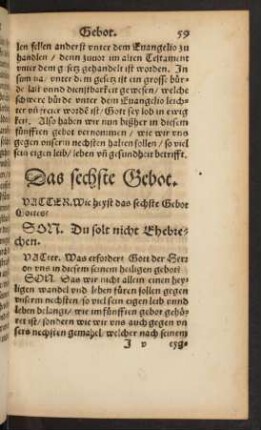 Gebot. 59
len sellen anderst vnter dem Euangelio zu
handlen / denn zuuor im alten Testament
vnter dem gsetz gehandelt ist worden. In
som̄a / vnter dem gesetz ist ein grosse bür-
de last vnnd dienstbarkeit gewesen / welche
schwere bürde vnter dem Euangelio leich-
ter vn̄ freier wordē ist / Gott sey lob in ewig
keit. Also haben wir nun bißher in diesem
fünfften gebot vernommen / wie wir vns
gegen vnserm nechsten halten sollen / so viel
sein eigen leib / leben vn̄ gesundheit betrifft.
Das sechste Gebot.
VATTER. Wie heyst das sechste Gebot
Gottes?
SON. Du solt nicht Ehebre-
chen.
VATter. Was erfordert Gott der Herr
von vns in diesem seinem heiligen gebot?
SON. Das wir nicht allein einen hey-
ligen wandel vnd leben füren sollen gegen
vnserm nechsten / so viel sein eigen leib vnnd
leben belangt / wie im fünfften gebot gehö-
ret ist / sondern wie wir vns auch gegen vn
sers nechsten gemahel / welcher nach seinem
J v eyg-